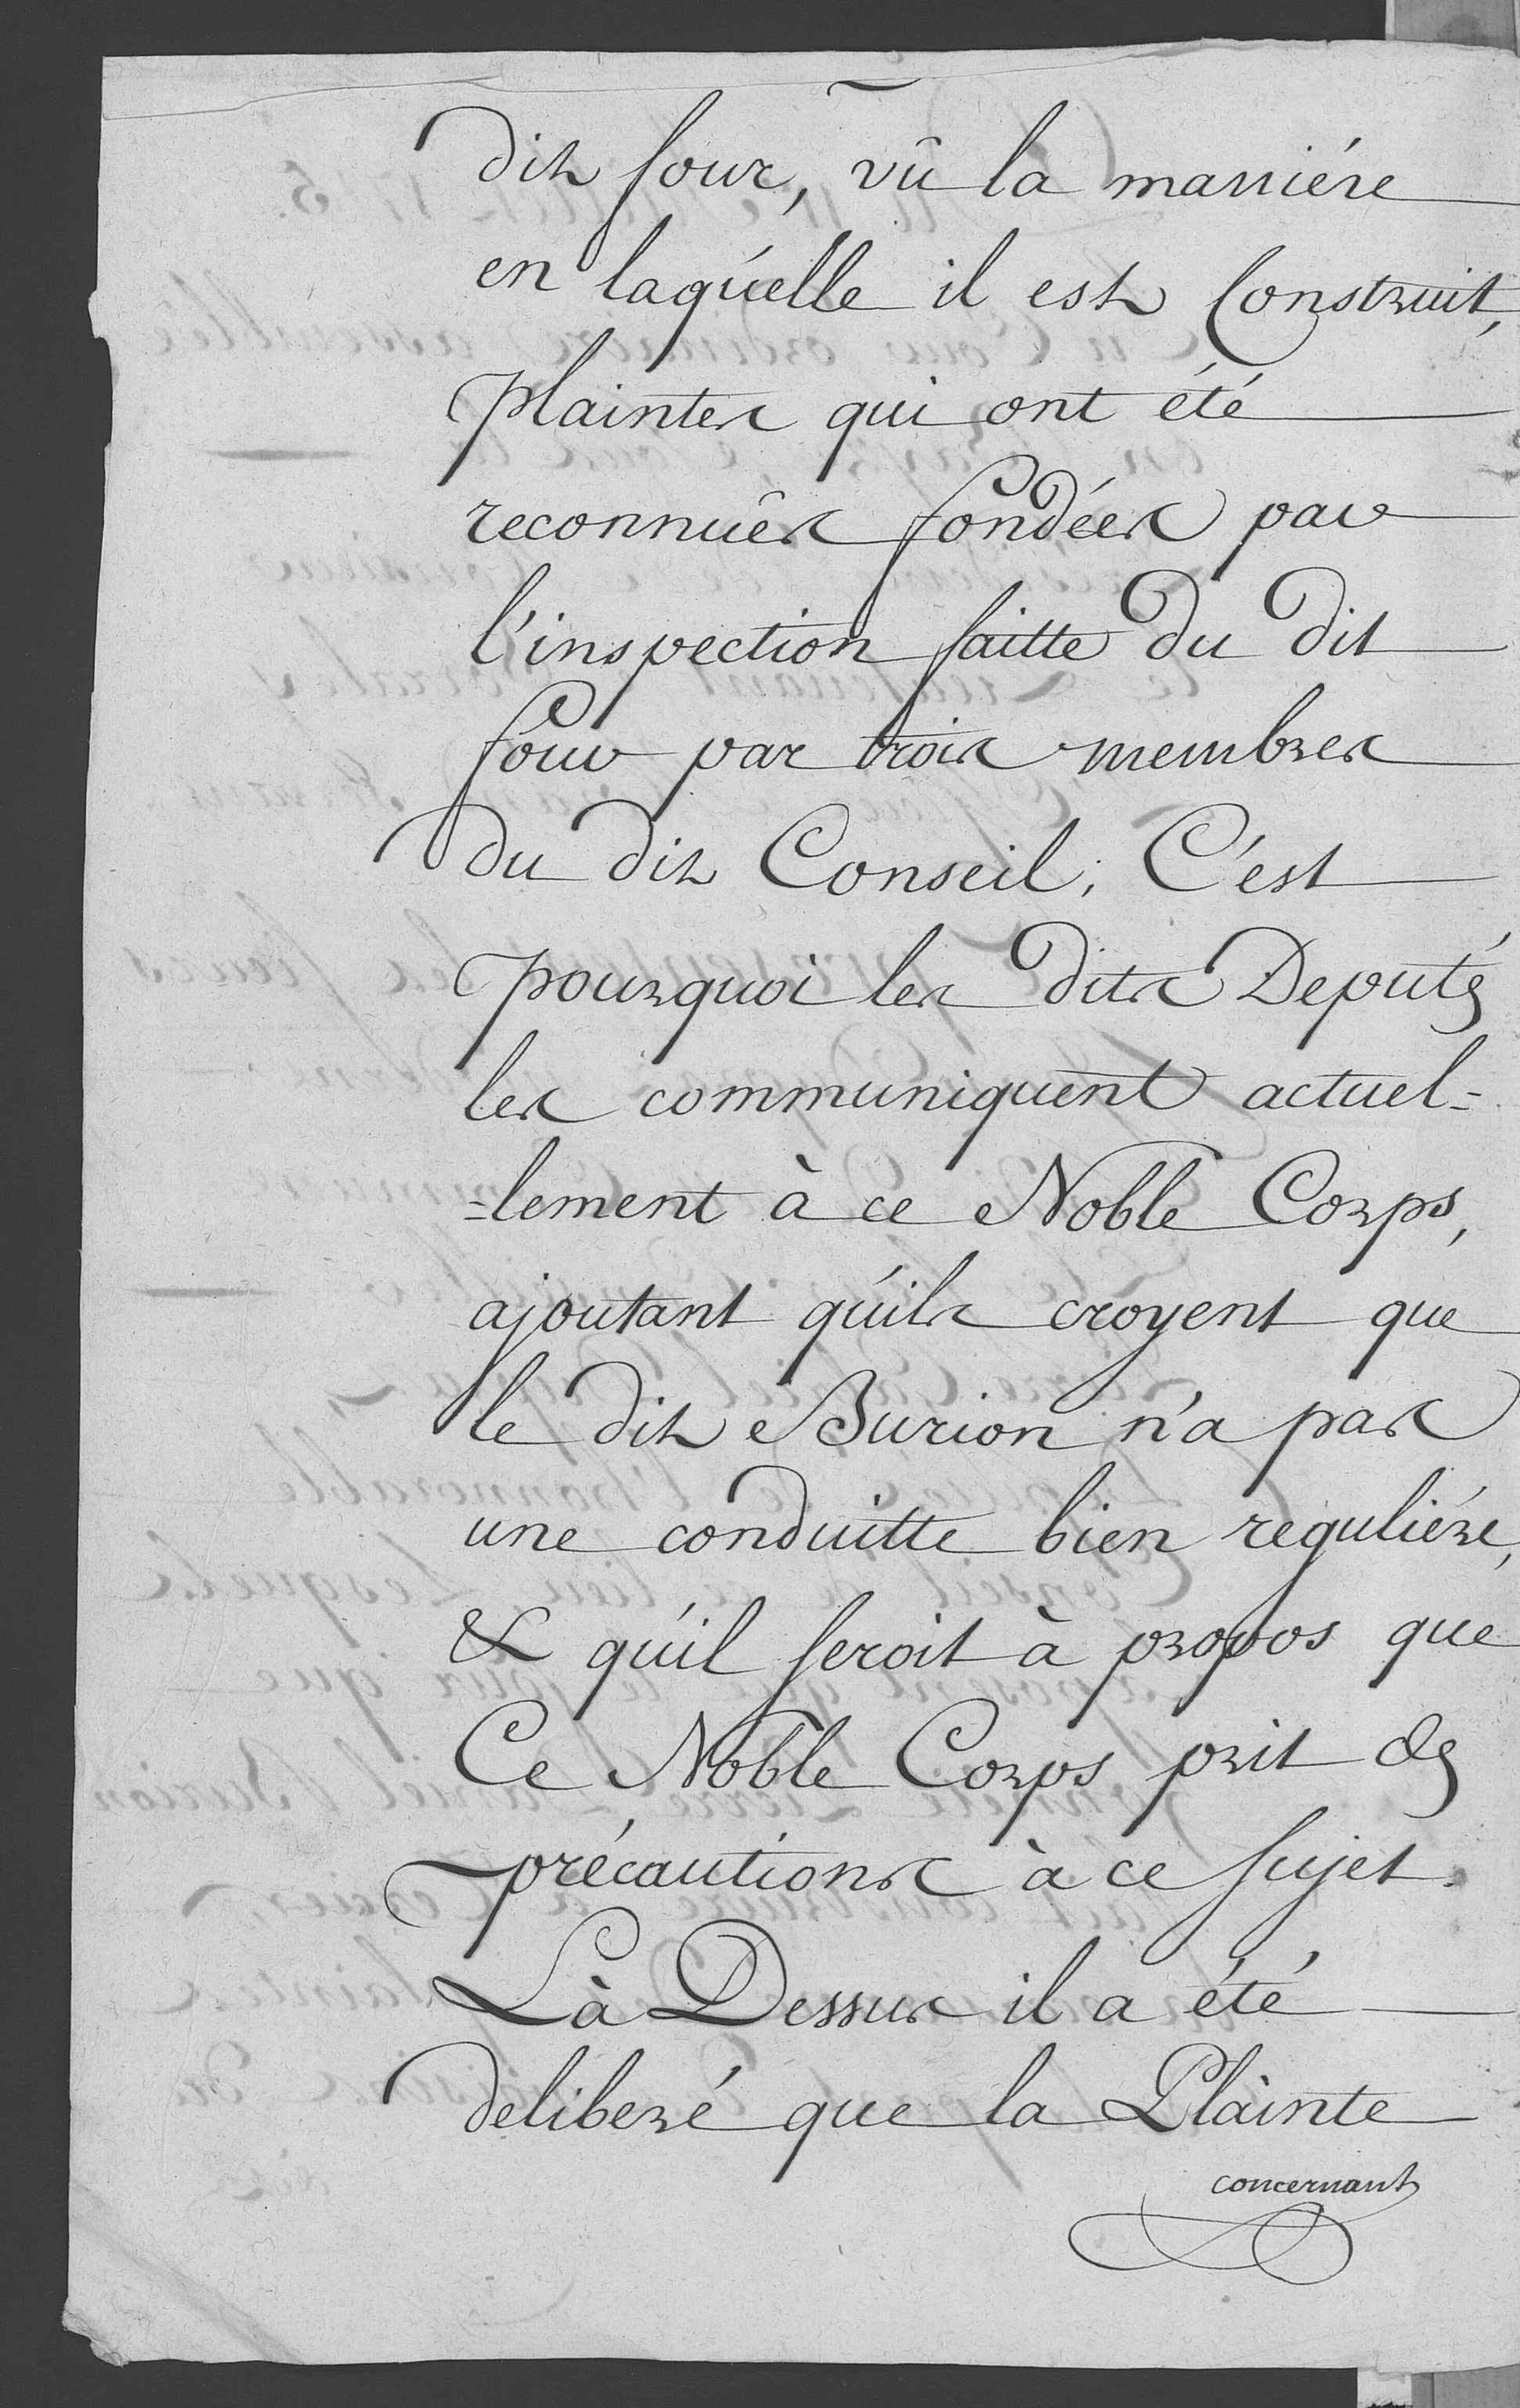 dit four, vû la maniére
en laqúelle il est Construit,
plaintes qui ont été
reconnuês fondées par
l'inspection faitte du dit
four par trois membres
du dit Conseil; C'est
pourquoi les dits Deputés
les communiquent actuel=
=lement à ce Noble Corps,
ajoutant qu'ils croyent que
le dit Burion n'a pas
une conduitte bien reguliére,
& qu'il seroit à propos que
Ce Noble Corps prit des
précautions à ce sujet.
Là Dessus il a été
deliberé que la Plainte
concernant